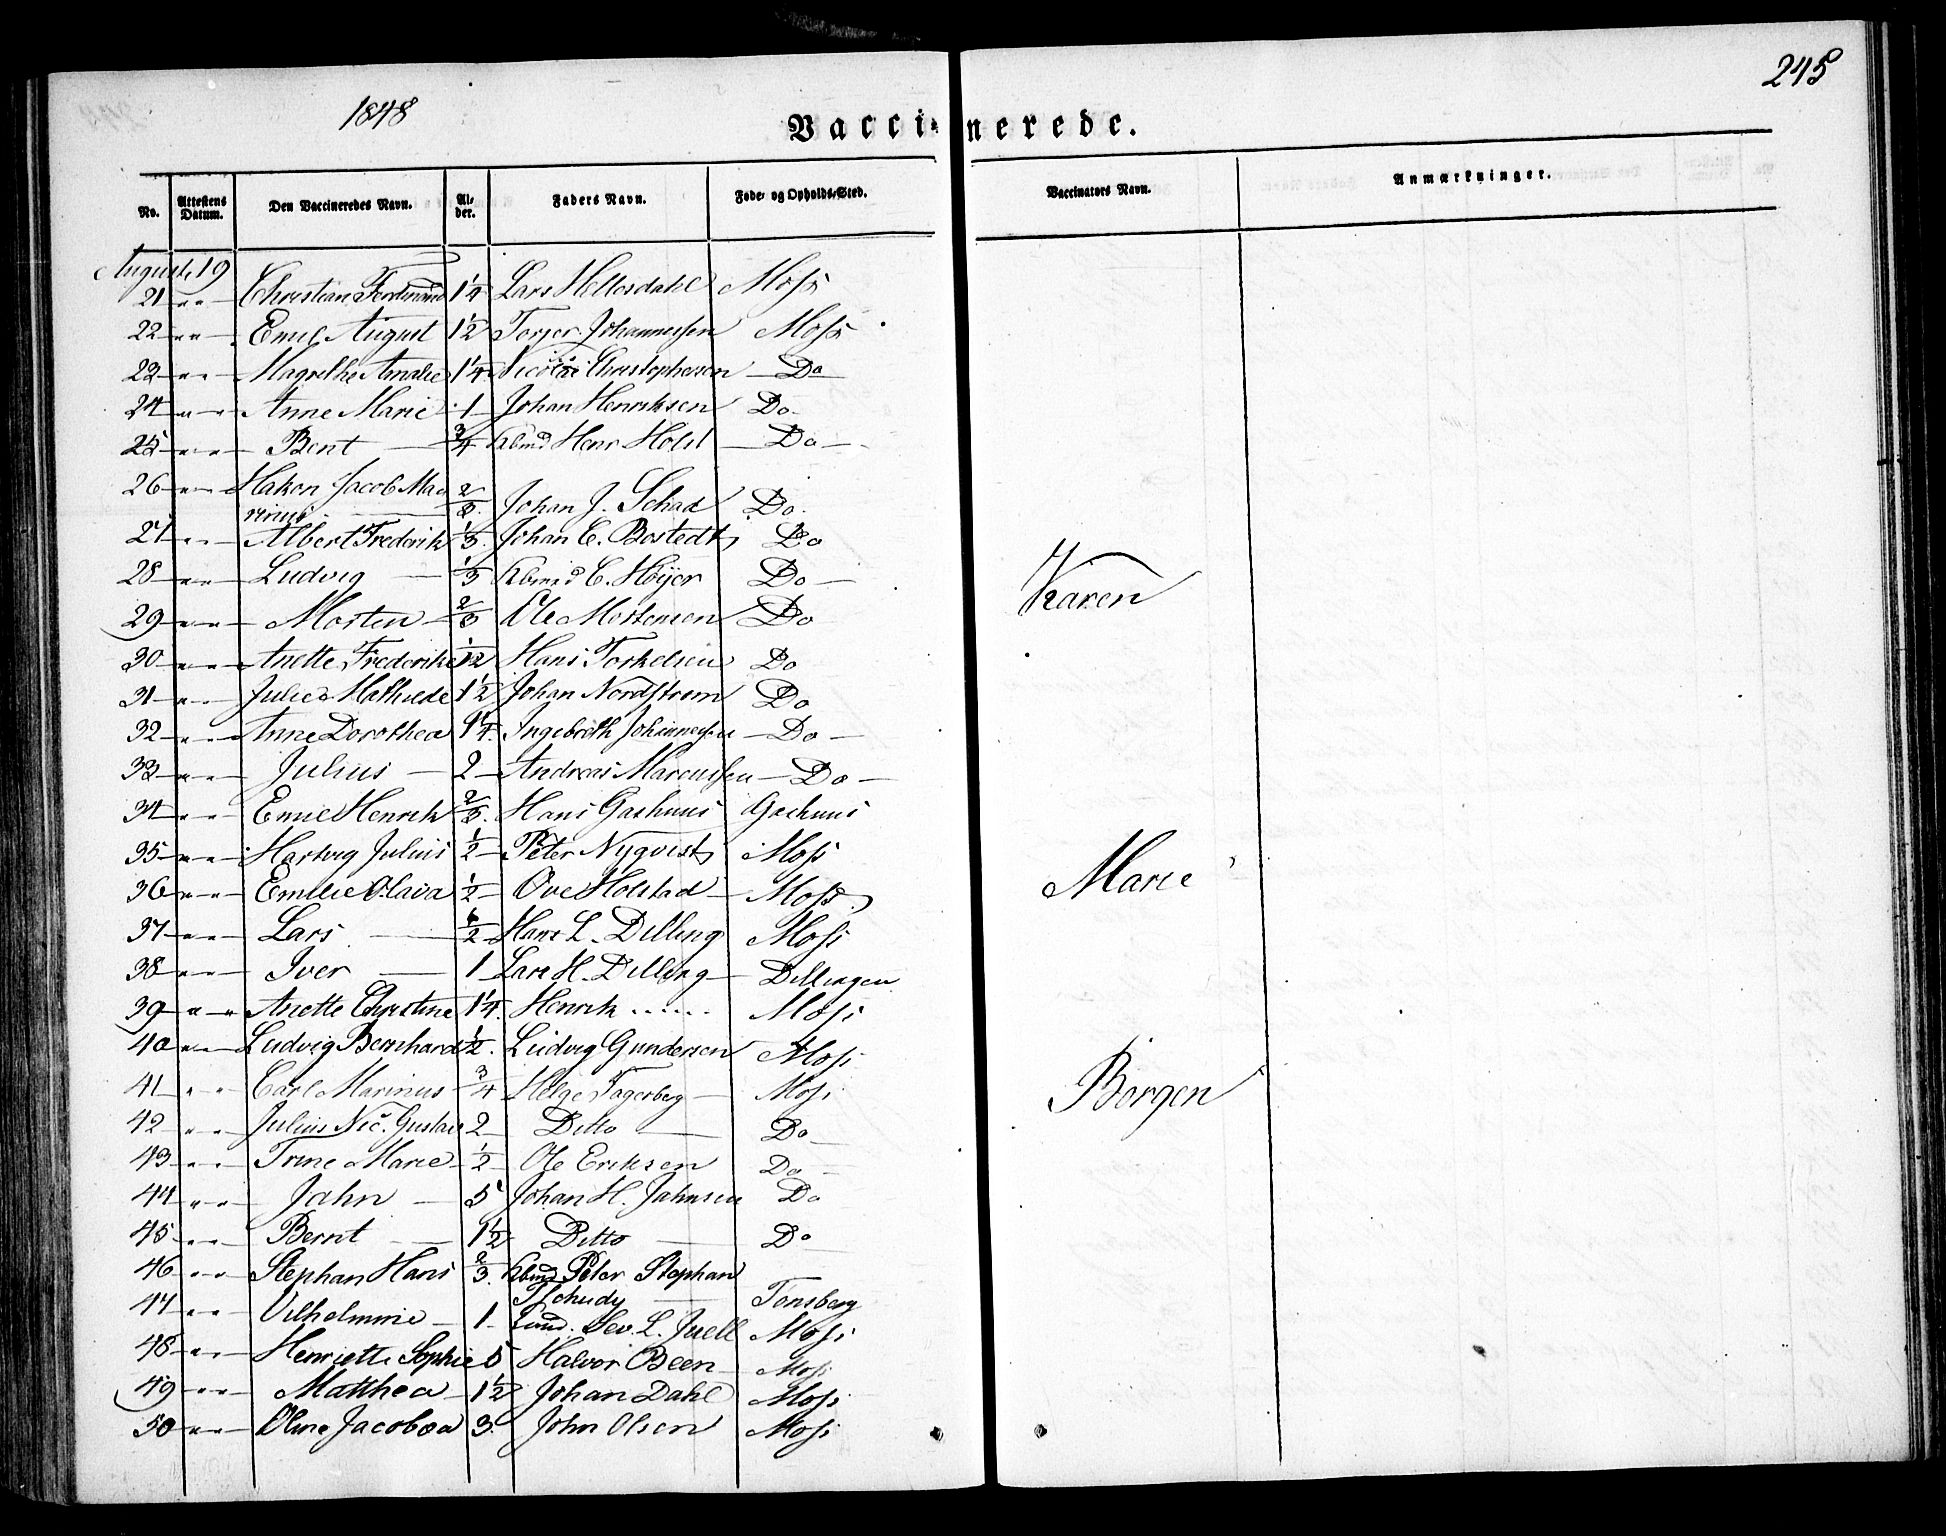 1848
245
Vaccinerede.
No. Attestens Datum. Den Vaccineredes Navn. Al- der. Faders Navn. Føde- og Opholds-Sted. Vaccinators Navn. Anmærkninger.
August 19
21 " " Christian Ferdinand 1 1/4 Lars Mellosdahl Moss
22 " " Emil August 1 1/2 Torjer Johannessen Moss
23 " " Magrethe Amalie 1 1/4 Nicolai Christophersen Do
24 " " Anne Marie 1 Johan Henriksen Do
25 " " Bent 3/4 Kbmd Henr Holst Do
26 " " Hakon Jacob Ma- 2/3 Johan J. Schad Do
rinus
27 " " Albert Frederik 1/3 Johan E. Bostedt Do
28 " " Ludvig 1/3 Kbmd C. Høyer Do
Karen
29 " " Morten 2/3 Ole Mortensen Do
30 " " Anette Frederike 1/2 Hans Torkelsen Do
31 " " Julie Mathilde 1 1/2 Johan Nordstrøm Do
32 " " Anne Dorothea 1 1/4 Ingebreth Johannessen Do
33 " " Julius 2 Andreas Marcussen Do
34 " " Emil Henrik 2/3 Hans Gashuus Gashuus
35 " " Hartvig Julius 1/2 Peter Nyqvist Moss
36 " " Emilie Olava 1/2 Ove Holstad Moss
Marie
37 " " Lars 1/2 Hans L. Delling Moss
38 " " Iver 1 Lars H. Delling Dellingen
39 " " Anette Christine 1 1/4 Henrik ...... Moss
40 " " Ludvig Bernhard 1/2 Ludvig Gundersen Moss
41 " " Carl Marinus 3/4 Helge Fagerberg Moss
Borgen
42 " " Julius Nic. Gustav 2 Ditto Do
43 " " Trine Marie 1/2 Ole Eriksen Do
44 " " Jahn 5 Johan H. Jahnsen Do
45 " " Bernt 1 1/2 Ditto Do
46 " " Stephan Hans 2/3 Kbmd Peter Stephan
Tschudy Tønsberg
47 " " Vilhelmine 1 Sev. L. Juell Moss
48 " " Henriette Sophie 5 Halvor Been Moss
49 " " Matthea 1 1/2 Johan Dahl Moss
50 " " Oline Jacobea 3 John Olsen Moss